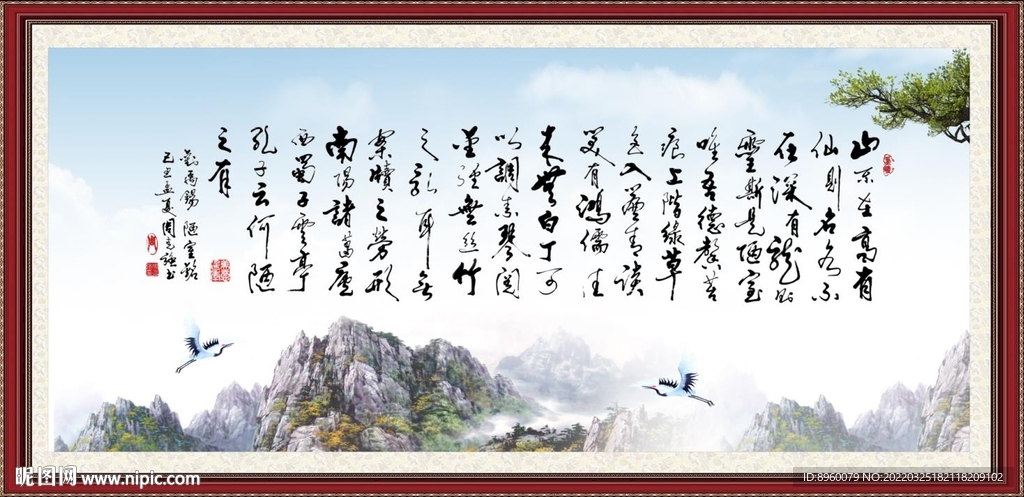 山不在高有
仙則名水不
在深有龍則
靈斯是陋室
唯吾德馨苔
痕上階綠草
色入簾青談
笑有鴻儒往
来無白丁可
以調素琴閱
金經無絲竹
之亂耳無
案牘之勞形
南陽諸葛廬
西蜀子雲亭
孔子云何陋
之有
劉禹錫 陋室銘
己丑孟夏周書
昵图网 www.nipic.com
ID:8960079 NO:20220325182118209102